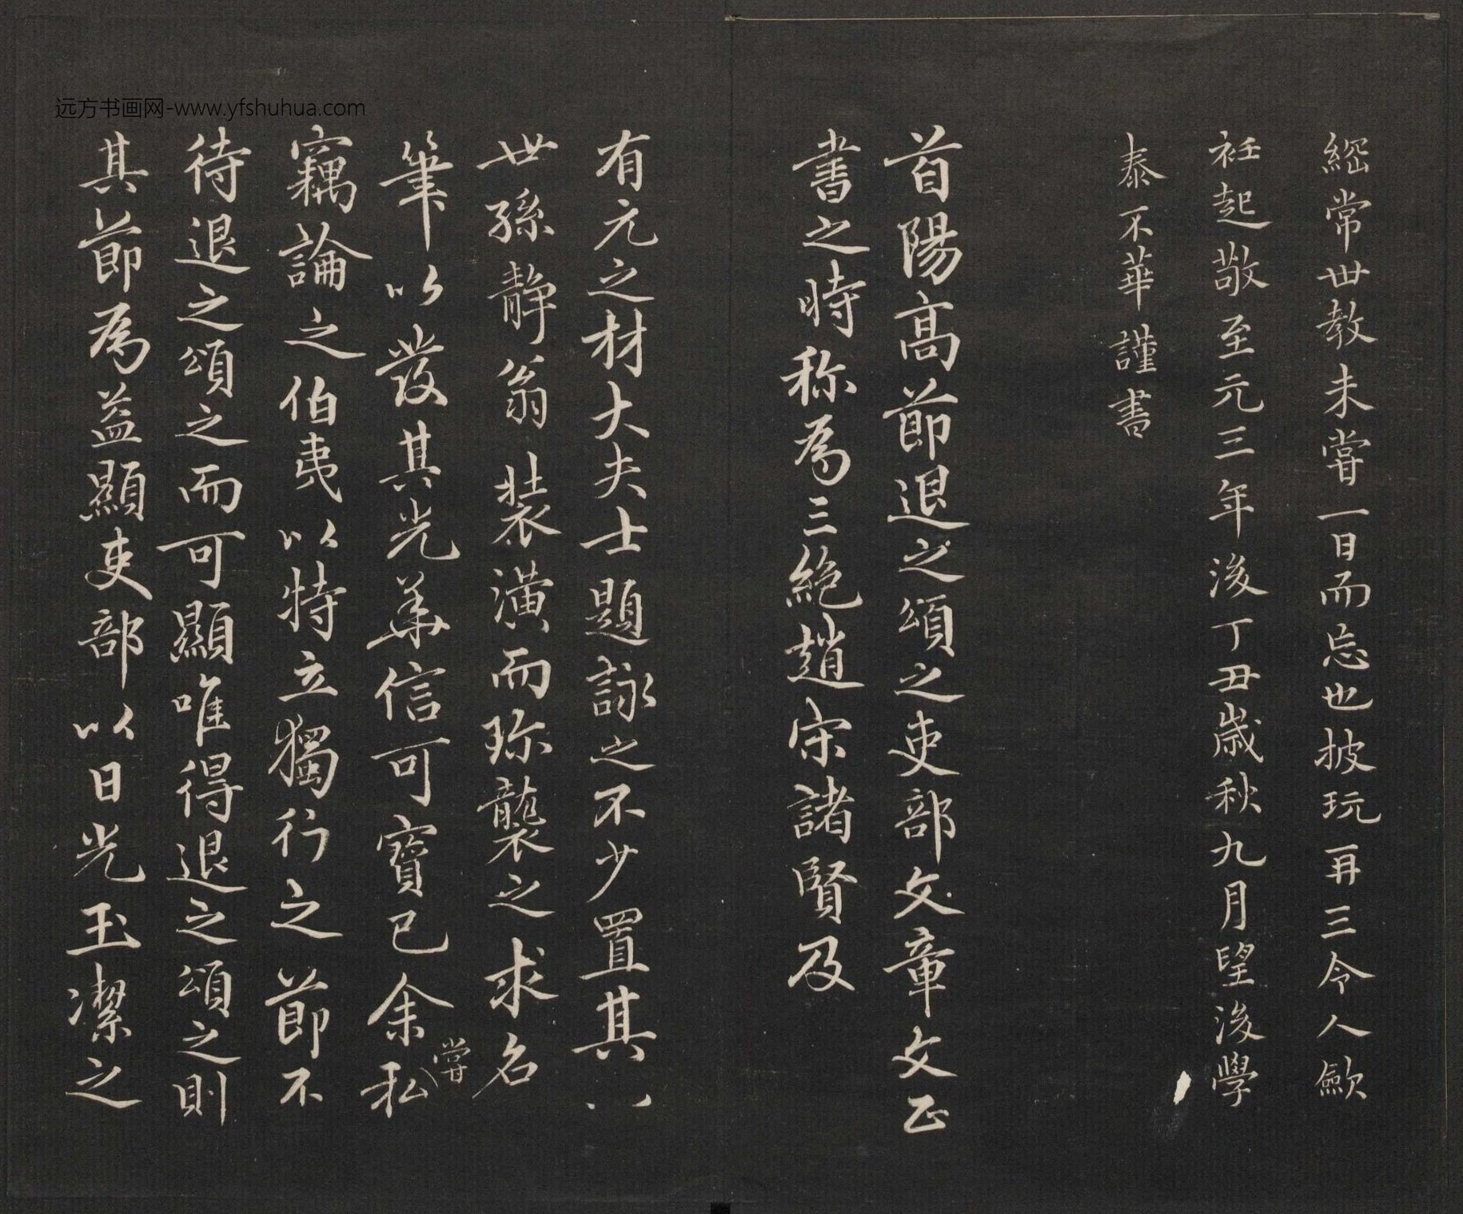 綱常世教未嘗一日而忘也披玩再三令人歛
衽起敬至元三年後丁丑歲秋九月望後學
泰不華謹書
首陽髙節退之頌之吏部文章文正
書之時称為三絶趙宋諸賢及
有元之材大夫士題詠之不少置其八
世孫静翁裝潢而珎襲之求名
筆以發其光華信可寶已余嘗私
竊論之伯夷以特立獨行之節不
待退之頌之而可顯唯得退之頌之則
其節為益顯吏部以日光玉潔之
远方书画网-www.yfshuhua.com